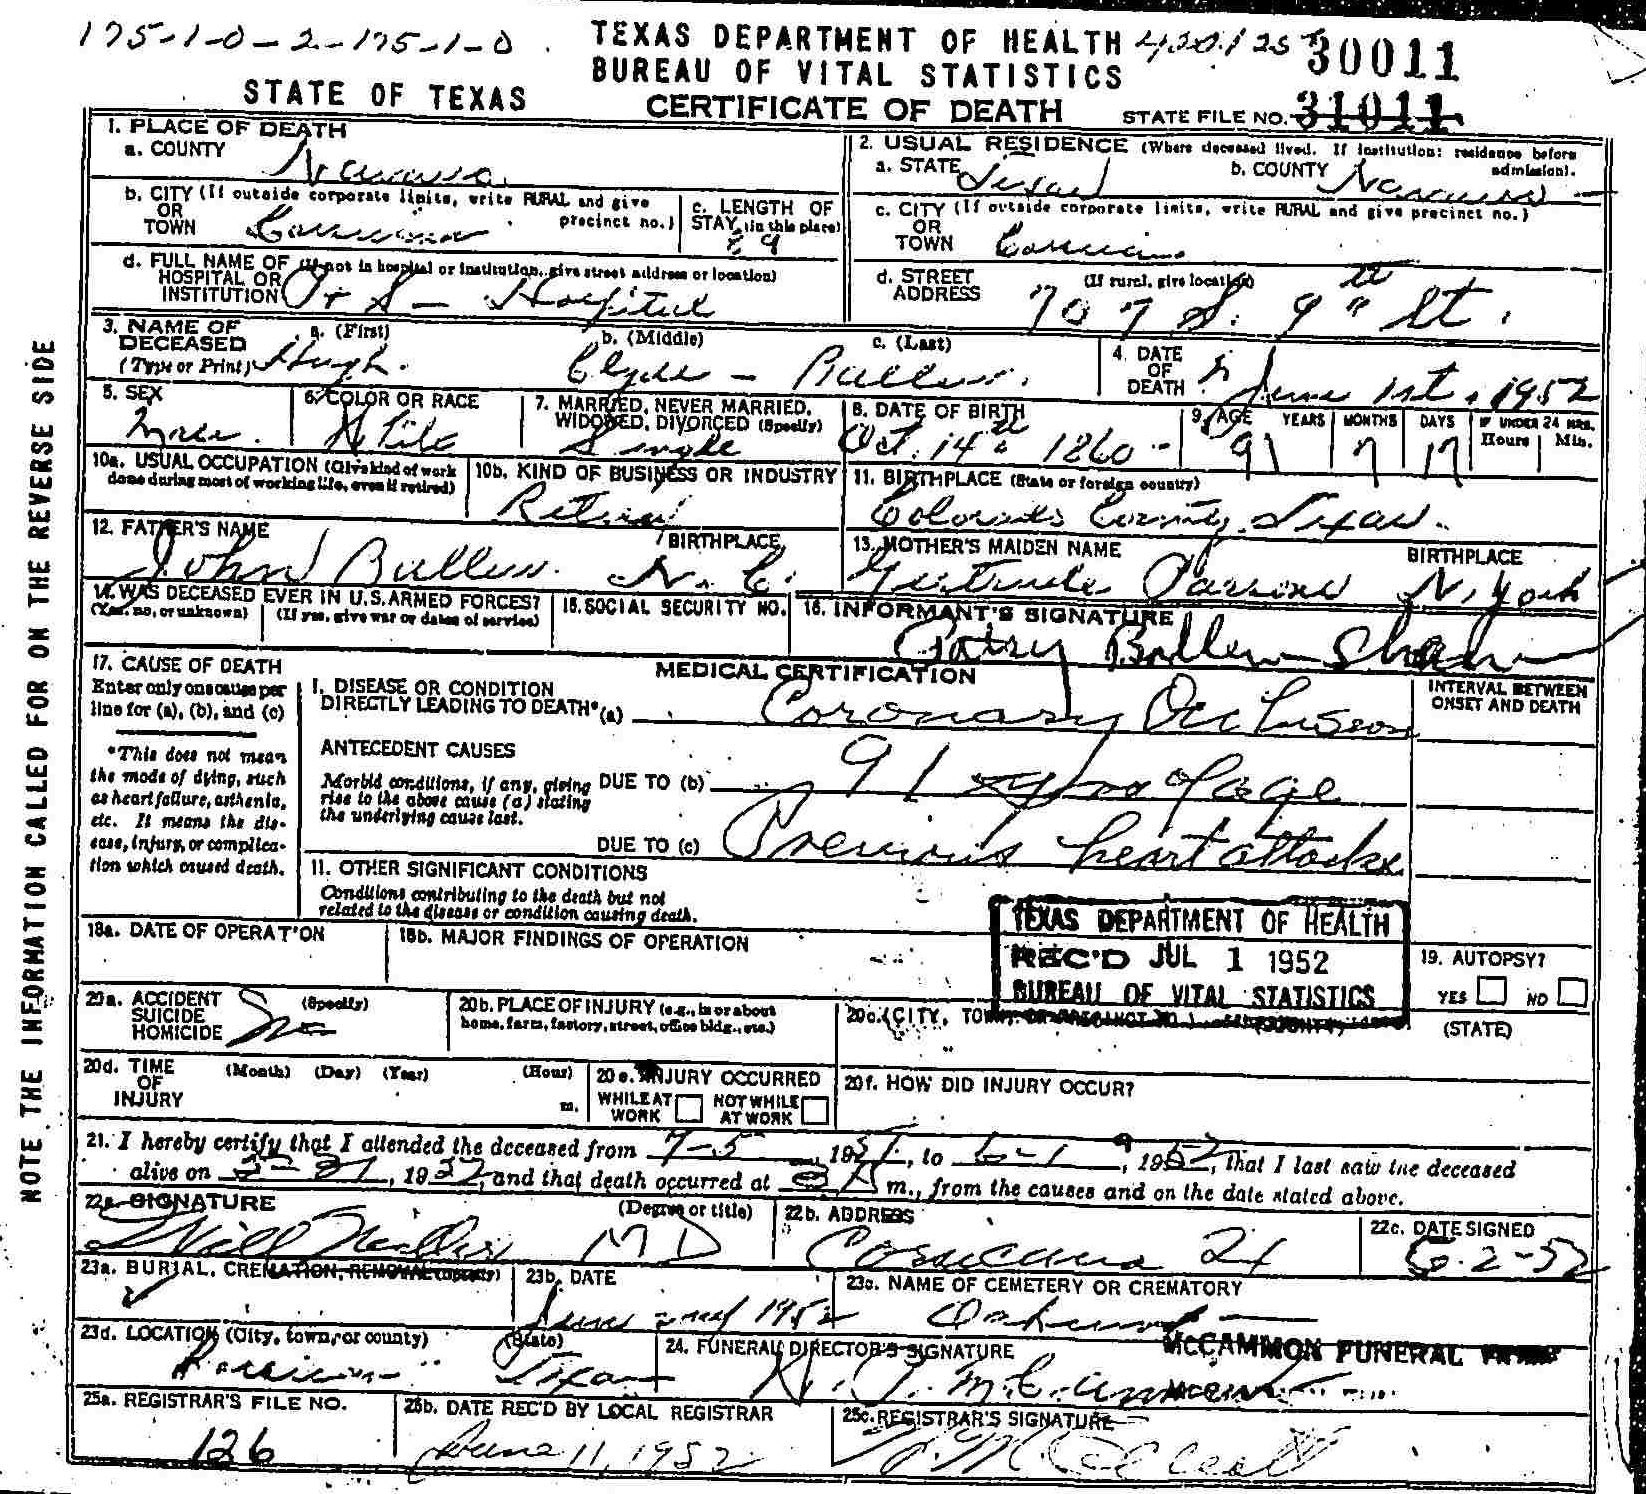 175-1-0-2-175-1-0
TEXAS DEPARTMENT OF HEALTH
BUREAU OF VITAL STATISTICS
30011
STATE OF TEXAS
CERTIFICATE OF DEATH
STATE FILE NO. 31011
1. PLACE OF DEATH
a. COUNTY Navarro
2. USUAL RESIDENCE (Where deceased lived. If institution: residence before admission).
a. STATE Texas b. COUNTY Navarro
b. CITY (If outside corporate limits, write RURAL and give precinct no.)
OR
TOWN Corsicana
c. LENGTH OF
STAY (in this place)
c. CITY (If outside corporate limits, write RURAL and give precinct no.)
OR
TOWN Corsicana
d. FULL NAME OF (If not in hospital or institution, give street address or location)
HOSPITAL OR
INSTITUTION P + S - Hospital
d. STREET (If rural, give location)
ADDRESS 707 S. 9th St.
3. NAME OF DECEASED
(Type or Print)
a. (First) Hugh.
b. (Middle) Clyde -
c. (Last) Buller.
4. DATE
OF
DEATH June 1st, 1952
5. SEX Male.
6. COLOR OR RACE White
7. MARRIED, NEVER MARRIED,
WIDOWED, DIVORCED (Specify) Single
8. DATE OF BIRTH Oct. 14th 1860 -
9. AGE YEARS 91 MONTHS 7 DAYS 17 IF UNDER 24 HRS. Hours Min.
10a. USUAL OCCUPATION (Give kind of work
done during most of working life, even if retired)
10b. KIND OF BUSINESS OR INDUSTRY
Retired
11. BIRTHPLACE (State or foreign country)
Colorado County, Texas.
12. FATHER'S NAME BIRTHPLACE
John Buller. N. C.
13. MOTHER'S MAIDEN NAME BIRTHPLACE
Gertrude Parsons N. York
14. WAS DECEASED EVER IN U.S. ARMED FORCES?
(Yes, no, or unknown) (If yes, give war or dates of service)
15. SOCIAL SECURITY NO.
16. INFORMANT'S SIGNATURE
Patsy Buller Shaw
17. CAUSE OF DEATH
Enter only one cause per
line for (a), (b), and (c)
MEDICAL CERTIFICATION
INTERVAL BETWEEN
ONSET AND DEATH
I. DISEASE OR CONDITION
DIRECTLY LEADING TO DEATH* (a) Coronary Occlusion
*This does not mean
the mode of dying, such
as heart failure, asthenia,
etc. It means the dis-
ease, injury, or complica-
tion which caused death.
ANTECEDENT CAUSES
Morbid conditions, if any, giving
rise to the above cause (a) stating
the underlying cause last.
DUE TO (b) 91 yrs of age
DUE TO (c) Previous heart attacks
11. OTHER SIGNIFICANT CONDITIONS
Conditions contributing to the death but not
related to the disease or condition causing death.
TEXAS DEPARTMENT OF HEALTH
REC'D JUL 1 1952
BUREAU OF VITAL STATISTICS
18a. DATE OF OPERATION
18b. MAJOR FINDINGS OF OPERATION
19. AUTOPSY?
YES NO
20a. ACCIDENT (Specify)
SUICIDE
HOMICIDE
20b. PLACE OF INJURY (e.g., in or about
home, farm, factory, street, office bldg., etc.)
20c. (CITY, TOWN, OR PRECINCT NO.) (COUNTY) (STATE)
20d. TIME (Month) (Day) (Year) (Hour)
OF
INJURY m.
20e. INJURY OCCURRED
WHILE AT WORK NOT WHILE AT WORK
20f. HOW DID INJURY OCCUR?
21. I hereby certify that I attended the deceased from 7-5, 1951, to 6-1, 1952, that I last saw the deceased
alive on 5-31, 1952, and that death occurred at m., from the causes and on the date stated above.
22a. SIGNATURE (Degree or title)
Will Miller MD
22b. ADDRESS
Corsicana Tx
22c. DATE SIGNED
6-2-52
23a. BURIAL, CREMATION, REMOVAL (Specify)
23b. DATE
June 2nd 1952
23c. NAME OF CEMETERY OR CREMATORY
Oakwood
23d. LOCATION (City, town, or county) (State)
Corsicana Texas
24. FUNERAL DIRECTOR'S SIGNATURE
McCAMMON FUNERAL
25a. REGISTRAR'S FILE NO.
126
25b. DATE REC'D BY LOCAL REGISTRAR
June 11, 1952
25c. REGISTRAR'S SIGNATURE
NOTE THE INFORMATION CALLED FOR ON THE REVERSE SIDE